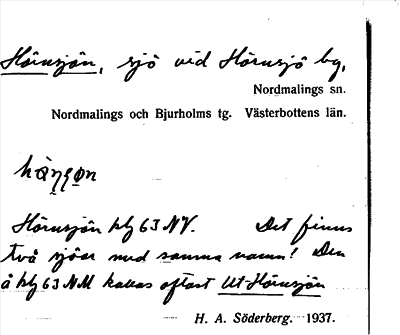 Hörnsjön, sjö vid Hörnsjö by,
Nordmalings sn.
Nordmalings och Bjurholms tg. Västerbottens län.
Hörnsjön blz 63 NV. Det finns
två sjöar med samma namn! Den
å blz 63 NM kallas oftast Ut-Hörnsjön
H. A. Söderberg. 1937.